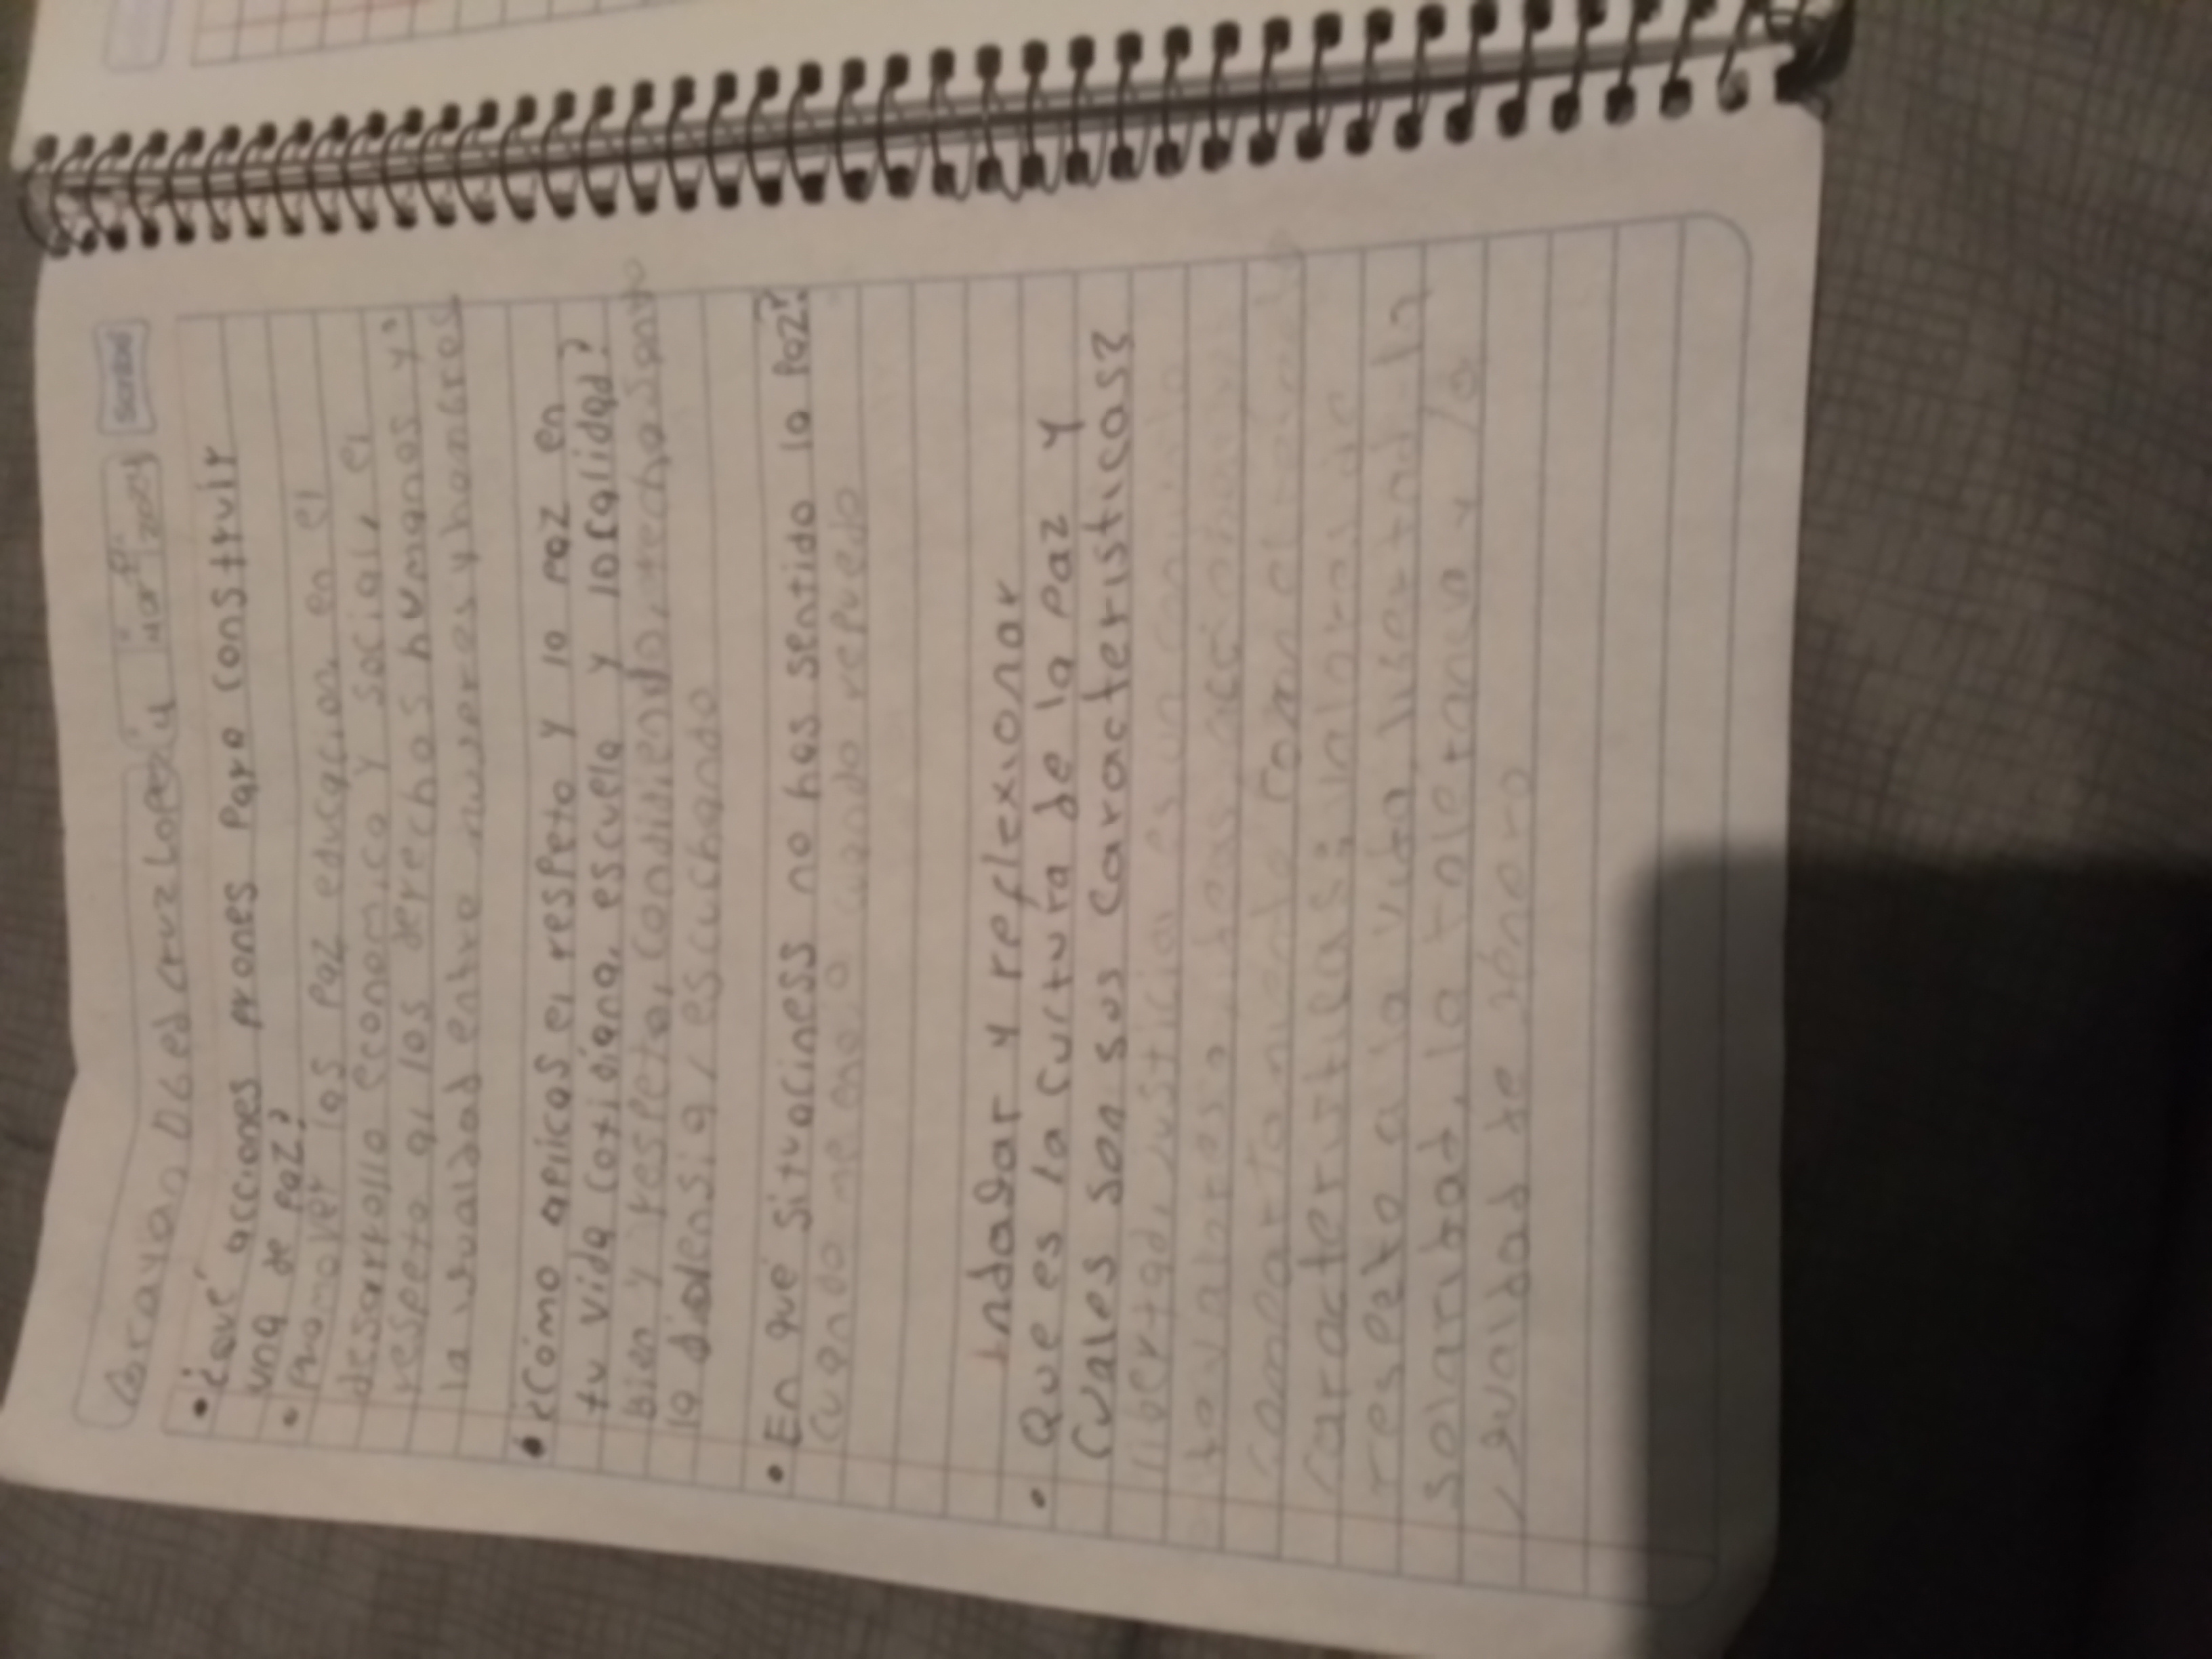 brayan Oged cruz Lopez
Scribe
• ¿Qué acciones prones para construir
una de paz?
• promover las paz educacion en el
desarrollo economico y social, el
respeto a, los derechos humanos y
la igualdad entre mujeres y hombres
• ¿Cómo aplicas el respeto y la paz en
tu vida cotidiana, escuela y localidad?
bien y respeto,
la y escuchando
• En qué situaciness no has sentido la paz?
cuando me eno, o cuando repuedo
indagar y reflexionar
• Que es la curtura de la paz y
cuales son sus caracteristicas?
libertad, justicia, es un
comportamiento
caracteristicas: valoras
respeto a la vida, libertad, la
solaridad, la toletancia y la
igualdad de género